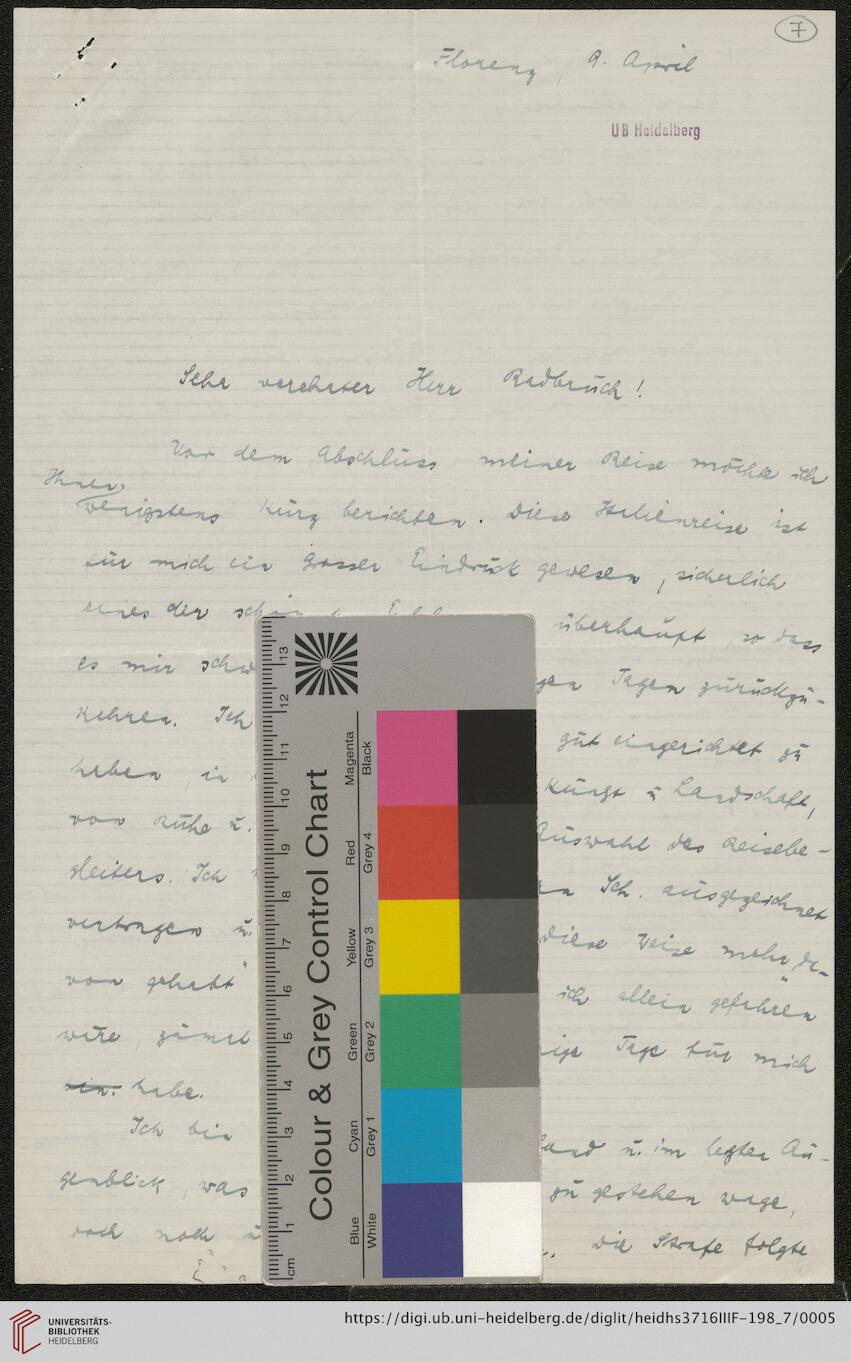 7
Florenz, 9. April
UB Heidelberg
Sehr verehrter Herr Radbruch!
Vor dem Abschluss meiner Reise möchte ich
Ihnen
wenigstens kurz berichten. Diese Italienreise ist
für mich ein grosser Eindruck gewesen, sicherlich
eines der überhaupt, so dass
es mir Tagen zurückzu-
kehren. Ich gut eingerichtet zu
haben, in Kunst u. Landschaft,
von Ruhe u. Auswahl des Reisebe-
gleiters. Ich Sch. ausgezeichnet
vertragen u. diese Weise mehr da-
von gehabt ich allein gefahren
wäre, zumal Tage für mich
habe.
Ich bin u. im letzten Au-
genblick, was zu gestehen wage,
doch noch Die Strafe folgte
Colour & Grey Control Chart
Magenta
Black
Red
Grey 4
Yellow
Grey 3
Green
Grey 2
Cyan
Grey 1
Blue
White
13
12
11
10
9
8
7
6
5
4
3
2
1
cm
UNIVERSITÄTS-
BIBLIOTHEK
HEIDELBERG
https://digi.ub.uni-heidelberg.de/diglit/heidhs3716IIIF-198_7/0005